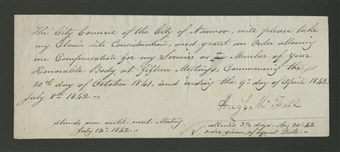 The City Council of the City of Nauvoo, will please take
my Claim into Consideration, and grant an Order allowing
me Compensation for my Services as Member of Your
Honorable Body at fifteen Meetings, Commencing the
30th day of October 1841, and ending the 9th day of April 1842.
July 8th 1842.
stands over until next Meeting
July 14th 1842.
allowed days Aug 20th 42